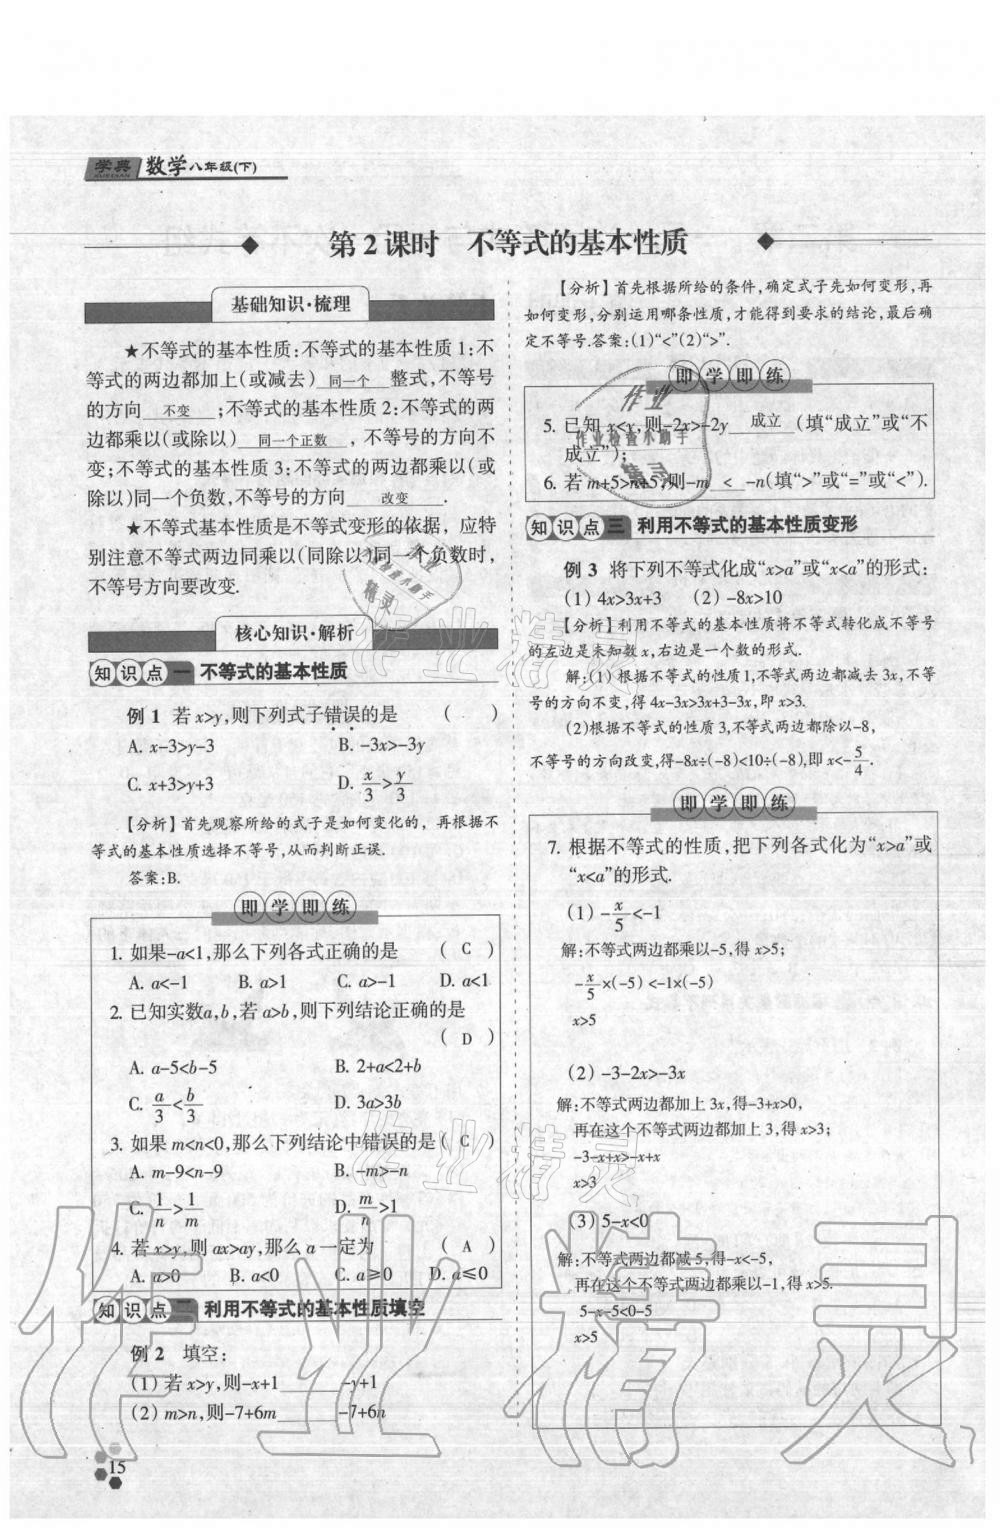 学典 数学八年级(下)
XUEDIAN
第2课时 不等式的基本性质
基础知识·梳理
★不等式的基本性质:不等式的基本性质1:不
等式的两边都加上(或减去) 同一个 整式,不等号
的方向 不变 ;不等式的基本性质2:不等式的两
边都乘以(或除以) 同一个正数 ,不等号的方向不
变;不等式的基本性质3:不等式的两边都乘以(或
除以)同一个负数,不等号的方向 改变 .
★不等式基本性质是不等式变形的依据,应特
别注意不等式两边同乘以(同除以)同一个负数时,
不等号方向要改变.
核心知识·解析
知识点一 不等式的基本性质
例1 若x>y,则下列式子错误的是 ( )
A. x-3>y-3 B. -3x>-3y
C. x+3>y+3 D. x/3>y/3
[分析]首先观察所给的式子是如何变化的,再根据不
等式的基本性质选择不等号,从而判断正误.
答案:B.
即学即练
1. 如果-a<1,那么下列各式正确的是 ( C )
A. a<-1 B. a>1 C. a>-1 D. a<1
2. 已知实数a,b,若a>b,则下列结论正确的是
( D )
A. a-5<b-5 B. 2+a<2+b
C. a/3<b/3 D. 3a>3b
3. 如果m<n<0,那么下列结论中错误的是( C )
A. m-9<n-9 B. -m>-n
C. 1/n>1/m D. m/n>1
4. 若x>y,则ax>ay,那么a一定为 ( A )
A. a>0 B. a<0 C. a≥0 D. a≤0
知识点二 利用不等式的基本性质填空
例2 填空:
(1)若x>y,则-x+1______-y+1
(2)m>n,则-7+6m______-7+6n
15
[分析]首先根据所给的条件,确定式子先如何变形,再
如何变形,分别运用哪条性质,才能得到要求的结论,最后确
定不等号.答案:(1)“<”(2)“>”.
即学即练
5. 已知x<y,则-2x>-2y 成立 (填“成立”或“不
成立”);
6. 若m+5>n+5,则-m < -n(填“>”或“=”或“<”).
知识点三 利用不等式的基本性质变形
例3 将下列不等式化成“x>a”或“x<a”的形式:
(1)4x>3x+3 (2)-8x>10
[分析]利用不等式的基本性质将不等式转化成不等号
的左边是未知数x,右边是一个数的形式.
解:(1)根据不等式的性质1,不等式两边都减去3x,不等
号的方向不变,得4x-3x>3x+3-3x,即x>3.
(2)根据不等式的性质3,不等式两边都除以-8,
不等号的方向改变,得-8x÷(-8)<10÷(-8),即x<-5/4.
即学即练
7. 根据不等式的性质,把下列各式化为“x>a”或
“x<a”的形式.
(1)-x/5<-1
解:不等式两边都乘以-5,得x>5;
-x/5×(-5)<-1×(-5)
x>5
(2)-3-2x>-3x
解:不等式两边都加上3x,得-3+x>0,
再在这个不等式两边都加上3,得x>3;
-3-x+x>-x+x
x>3
(3)5-x<0
解:不等式两边都减5,得-x<-5,
再在这个不等式两边都乘以-1,得x>5.
5-x-5<0-5
x>5
作业精灵
作业检查小助手